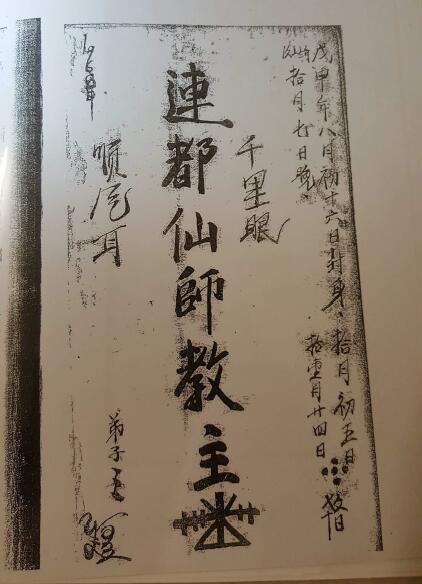 戊申年八月初十六日封身、拾月初五日
拾月七日晚
拾壹月廿四日
千里眼
連都仙師教主
順風耳
弟子王